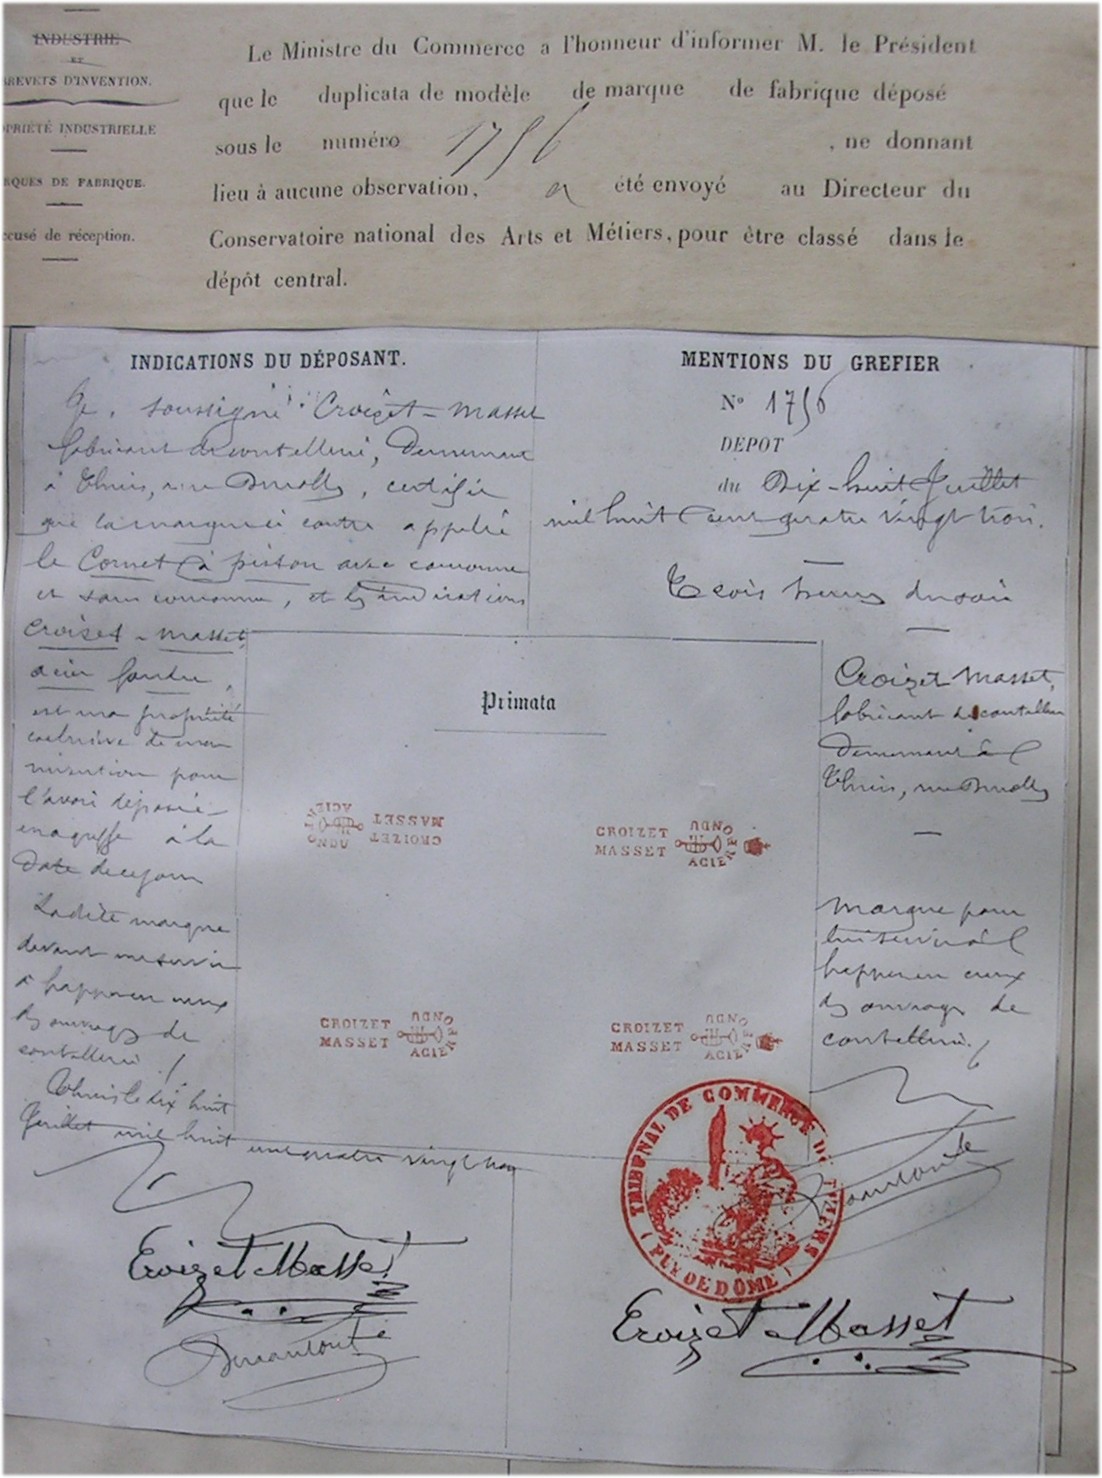 INDUSTRIE
ET
BREVETS D'INVENTION.
OPRIÉTÉ INDUSTRIELLE
RQUES DE FABRIQUE.
ccusé de réception.
Le Ministre du Commerce a l'honneur d'informer M. le Président
que le duplicata de modèle de marque de fabrique déposé
sous le numéro 1756, ne donnant
lieu à aucune observation, a été envoyé au Directeur du
Conservatoire national des Arts et Métiers, pour être classé dans le
dépôt central.
INDICATIONS DU DÉPOSANT.
Je, soussigné Croizet-Masset
fabricant de coutellerie, Demeurant
à Thiers, rue Durolle, certifie
que la marque ci contre appelée
le Cornet à piston avec couronne
et sans couronne, et les indications
Croizet-Masset,
acier fondu,
est ma propriété
exclusive de mon
invention pour
l'avoir déposée
en greffe à la
Date de ce jour
Ladite marque
devant me servir
à frapper en creux
des ouvrages de
coutellerie./
Thiers le dix huit
Juillet mil huit cent quatre vingt trois
Croizet Masset
MENTIONS DU GREFIER
No 1756
DEPOT
du Dix-huit Juillet
mil huit cent quatre vingt trois.
Trois heures du soir
Croizet Masset,
fabricant de coutellerie
Demeurant à
Thiers, rue Durolle
Marque pour
lui servir à
frapper en creux
des ouvrages de
coutellerie./
Primata
CROIZET
MASSET
ACIER FONDU
CROIZET
MASSET
ACIER FONDU
CROIZET
MASSET
ACIER FONDU
CROIZET
MASSET
ACIER FONDU
TRIBUNAL DE COMMERCE DE THIERS
(PUY DE DÔME)
Croizet Masset